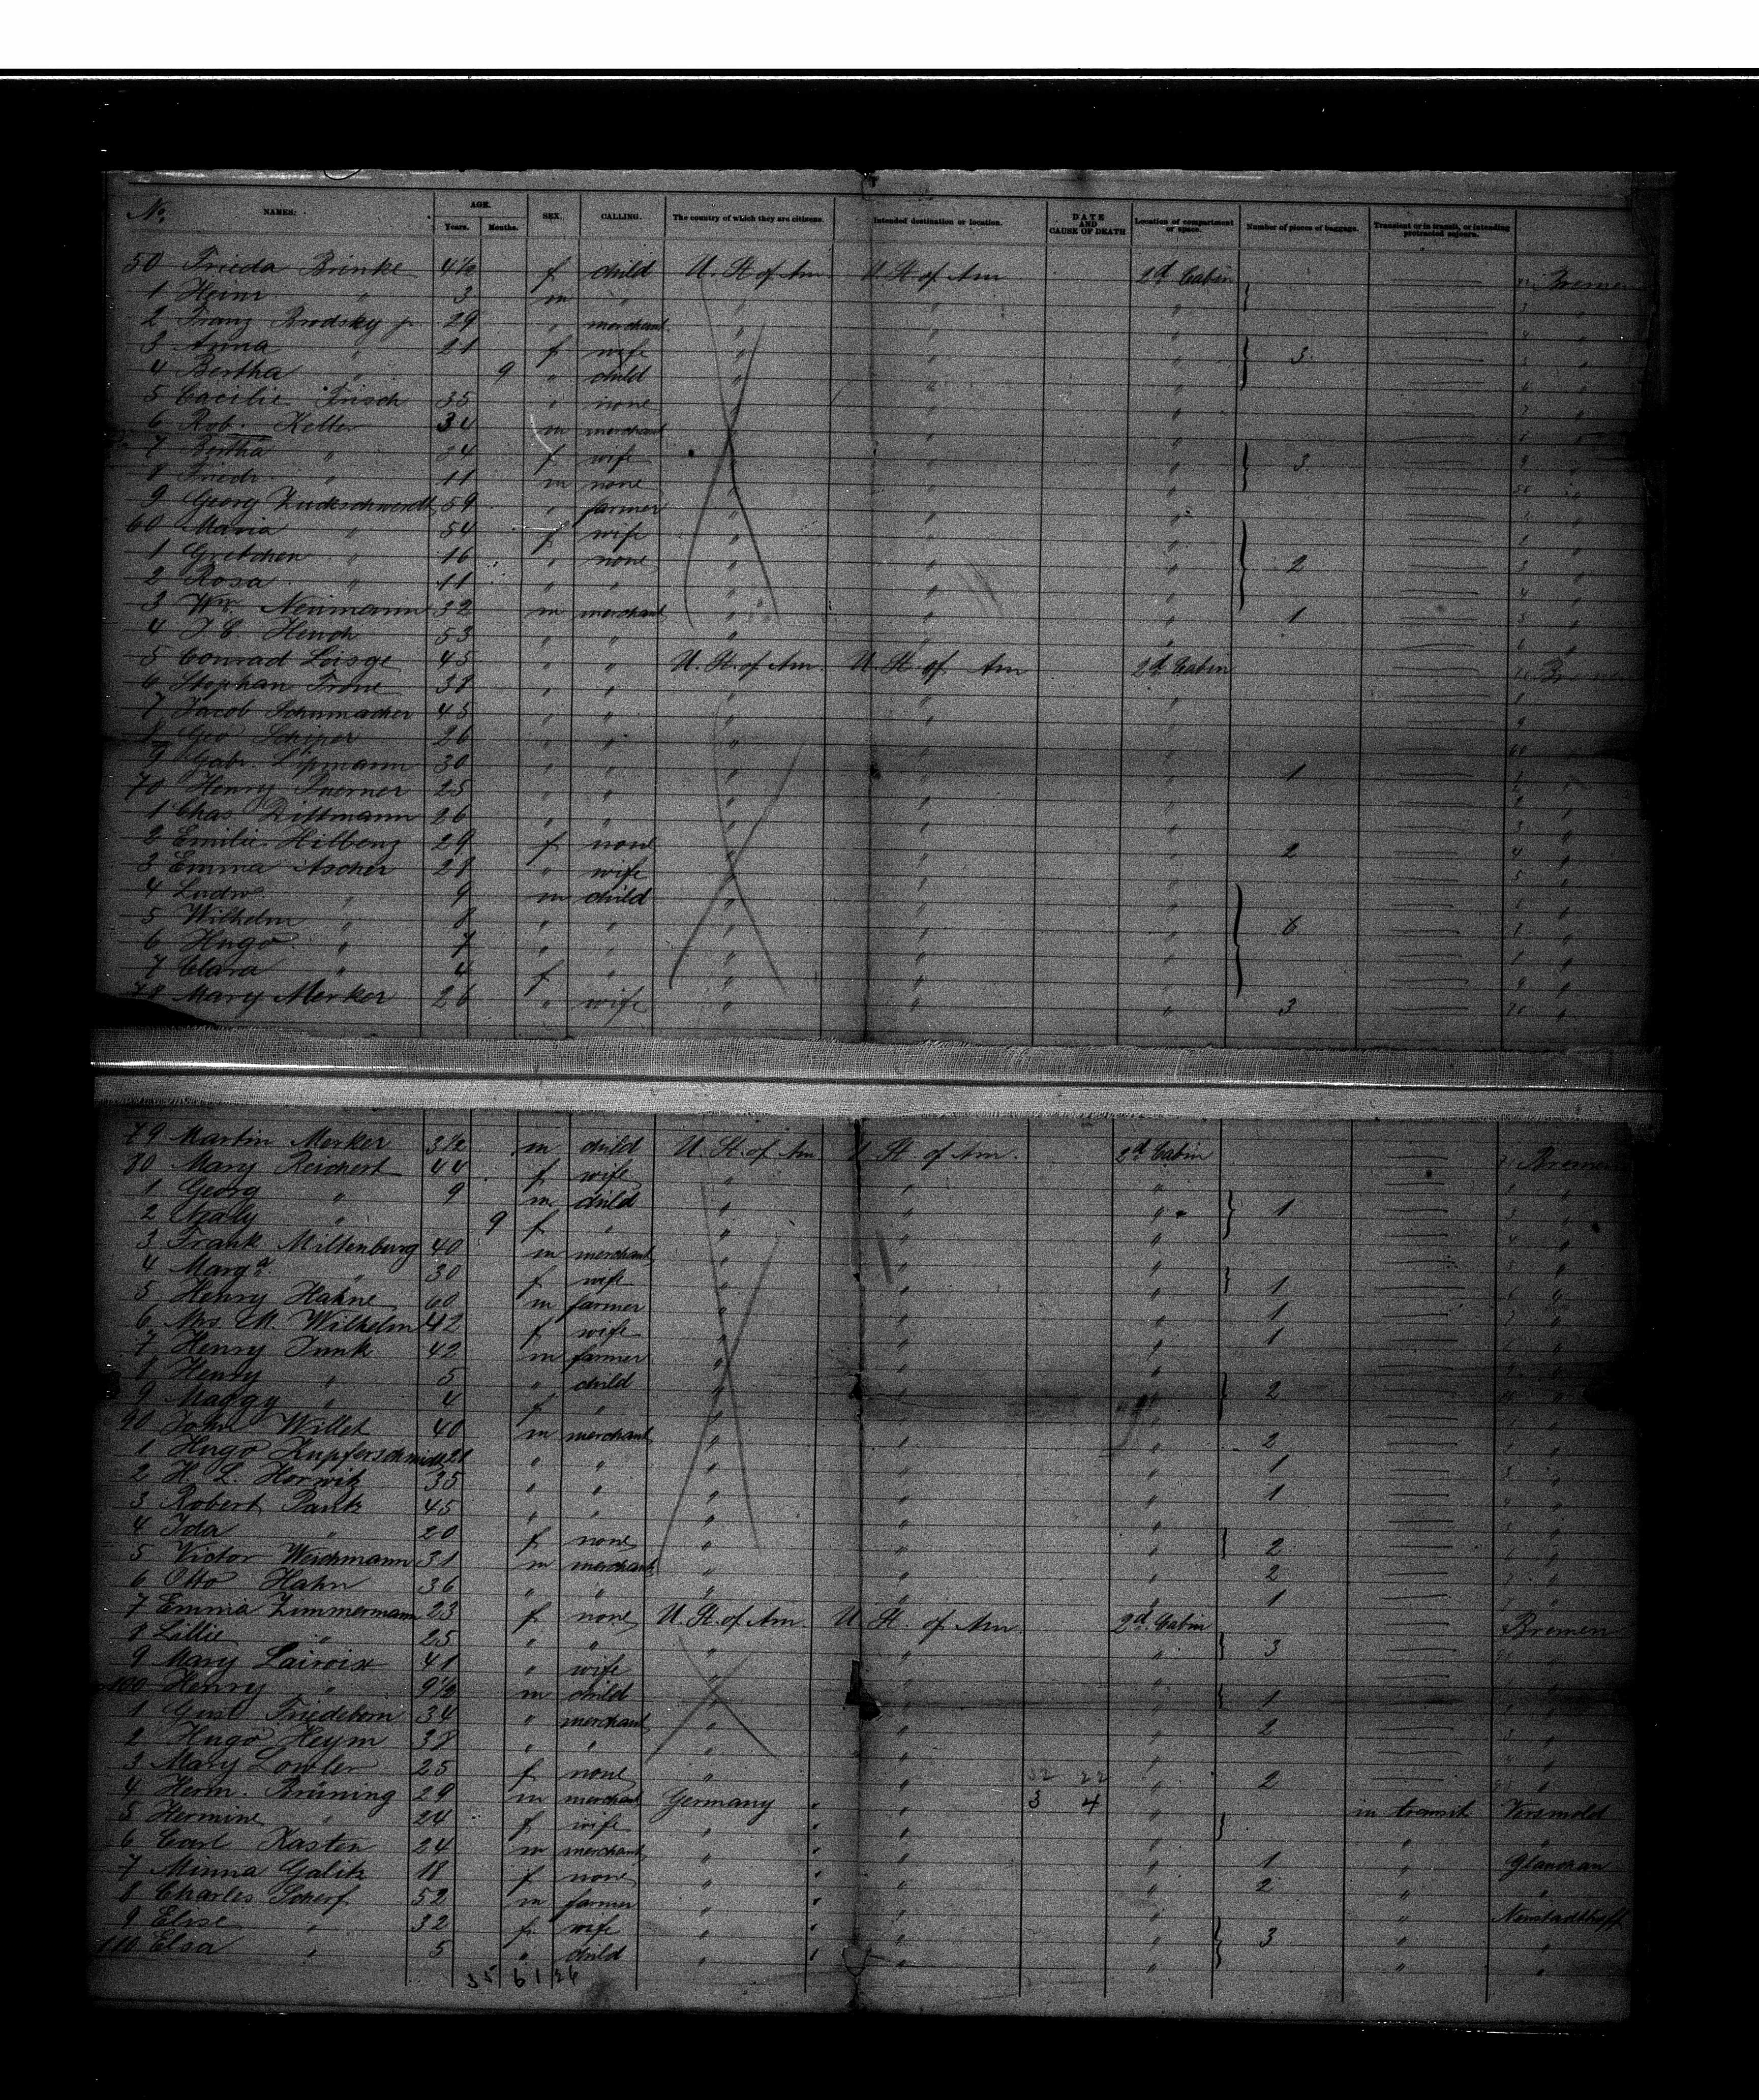 No. NAMES. AGE. Years. Months. SEX. CALLING. The country of which they are citizens. Intended destination or location. DATE AND CAUSE OF DEATH Location of compartment or space. Number of pieces of baggage. Transient or in transit, or intending protracted sojourn.
50 Frieda Brinke 4½ f child U. St. of Am U. St. of Am 2d Cabin Bremen
1 Heinr " 3 m " " " "
2 Franz Brodsky jr 29 " merchant " " "
3 Anna " 21 f wife " " " 3
4 Bertha " 9 " child " " "
5 Cacilie Frisch 35 " none " " "
6 Rob. Keller 34 m merchant " " "
7 Bertha " 24 f wife " " " 3
8 Friedr. " 11 m none " " "
9 Georg Zuckschwerdt 59 " farmer " " "
60 Maria " 54 f wife " " "
1 Gretchen " 16 " none " " " 2
2 Rosa " 11 " " " " "
3 Wm. Neumann 32 m merchant " " " 1
4 J C Hench 53 " " " " "
5 Conrad Loisge 45 " " U. St. of Am. U. St. of Am 2d Cabin
6 Stephan Trone 38 " " " " "
7 Jacob Schumacher 45 " " " " "
8 Geo Schiper 26 " " " " "
9 Gabr. Lipmann 30 " " " " " 1
70 Henry Puerner 25 " " " " "
1 Chas Dittmann 26 " " " " "
2 Emilie Hilbenz 29 f none " " " 2
3 Emma Ascher 28 " wife " " "
4 Ludw. " 9 m child " " "
5 Wilhelm " 8 " " " " " 6
6 Hugo " 7 " " " " "
7 Clara " 4 f " " " "
78 Mary Merker 26 " wife " " " 3
79 Martin Merker 3½ m child U. St. of Am U. St. of Am. 2d Cabin Bremen
80 Mary Reichert 44 f wife " " "
1 Georg " 9 m child " " " 1
2 " 9 f " " " "
3 Frank Miltenberg 40 m merchant " " "
4 Marga. " 30 f wife " " " 1
5 Henry Hahne 60 m farmer " " " 1
6 Mrs M. Wilhelm 42 f wife " " " 1
7 Henry Junk 42 m farmer " " "
8 Henry " 5 " child " " " 2
9 Maggy " 4 f " " " "
90 John Willet 40 m merchant " " " 2
1 Hugo Kupferschmidt 21 " " " " " 1
2 H. L. Horwitz 35 " " " " " 1
3 Robert Pank 45 " " " " "
4 Ida " 20 f none " " " 2
5 Victor Weichmann 31 m merchant " " " 2
6 Otto Hahn 36 " " " " " 1
7 Emma Zimmermann 23 f none U. St. of Am. U. St. of Am 2d Cabin Bremen
8 Lillie " 25 " " " " " 3
9 Mary Lairoix 41 " wife " " "
100 Henry " 9½ m child " " " 1
1 Gust Friedeborn 34 " merchant " " " 2
2 Hugo Heym 38 " " " " "
3 Mary Lowler 25 f none " " 32 22 " 2
4 Herm. Brüning 29 m merchant Germany " 3 4 " in transit Versmold
5 Hermine " 24 f wife " " " " "
6 Carl Kasten 24 m merchant " " " 1 " Glauchau
7 Minna Galitz 18 f none " " " 2 " "
8 Charles Scherf 52 m farmer " " " "
9 Elise " 32 f wife " " " 3 " "
110 Elsa " 5 " child " " " " "
35 61 26